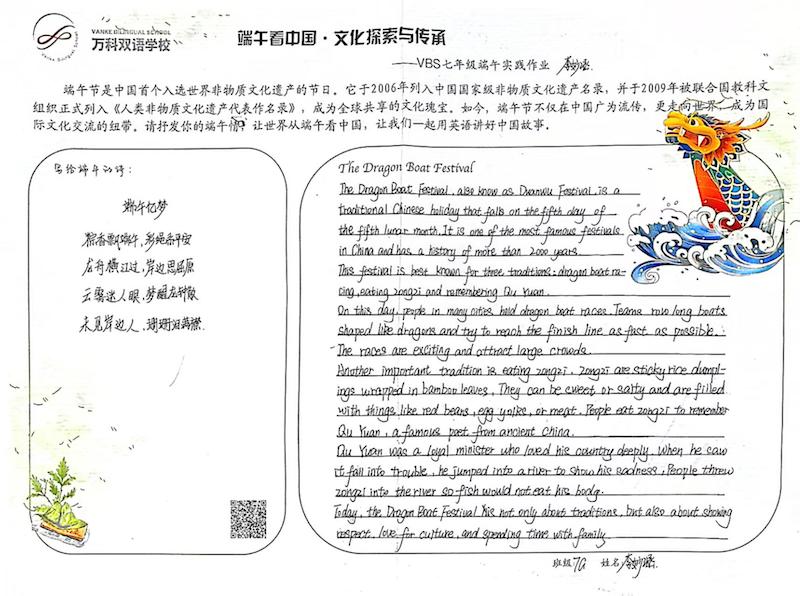 VANKE BILINGUAL SCHOOL
万科双语学校
端午看中国·文化探索与传承
——VBS七年级端午实践作业
端午节是中国首个入选世界非物质文化遗产的节日。它于2006年列入中国国家级非物质文化遗产名录，并于2009年被联合国教科文
组织正式列入《人类非物质文化遗产代表作名录》，成为全球共享的文化瑰宝。如今，端午节不仅在中国广为流传，更走向世界，成为国
际文化交流的纽带。请抒发你的端午情，让世界从端午看中国，让我们一起用英语讲好中国故事。
写给端午的诗：
端午忆梦
粽香飘端午，彩绳系平安
龙舟横江过，岸边思屈原
云雾迷人眼，梦醒龙舟散
未见岸边人，
The Dragon Boat Festival
The Dragon Boat Festival, also know as Duanwu Festival, is a
traditional Chinese holiday that falls on the fifth day of
the fifth lunar month. It is one of the most famous festivals
in China and has a history of more than 2000 years.
This festival is best known for three traditions: dragon boat ra-
cing, eating zongzi and remembering Qu Yuan.
On this day, people in many cities hold dragon boat races. Teams row long boats
shaped like dragons and try to reach the finish line as fast as possible.
The races are exciting and attract large crowds.
Another important tradition is eating zongzi. Zongzi are sticky rice dumpl-
ings wrapped in bamboo leaves. They can be sweet or salty and are filled
with things like red beans, egg yolks, or meat. People eat zongzi to remember
Qu Yuan, a famous poet from ancient China.
Qu Yuan was a loyal minister who loved his country deeply. When he saw
it fall into trouble, he jumped into a river to show his sadness. People threw
zongzi into the river so fish would not eat his body.
Today, the Dragon Boat Festival his not only about traditions, but also about showing
respect, love for culture, and spending time with family.
班级 7G 姓名